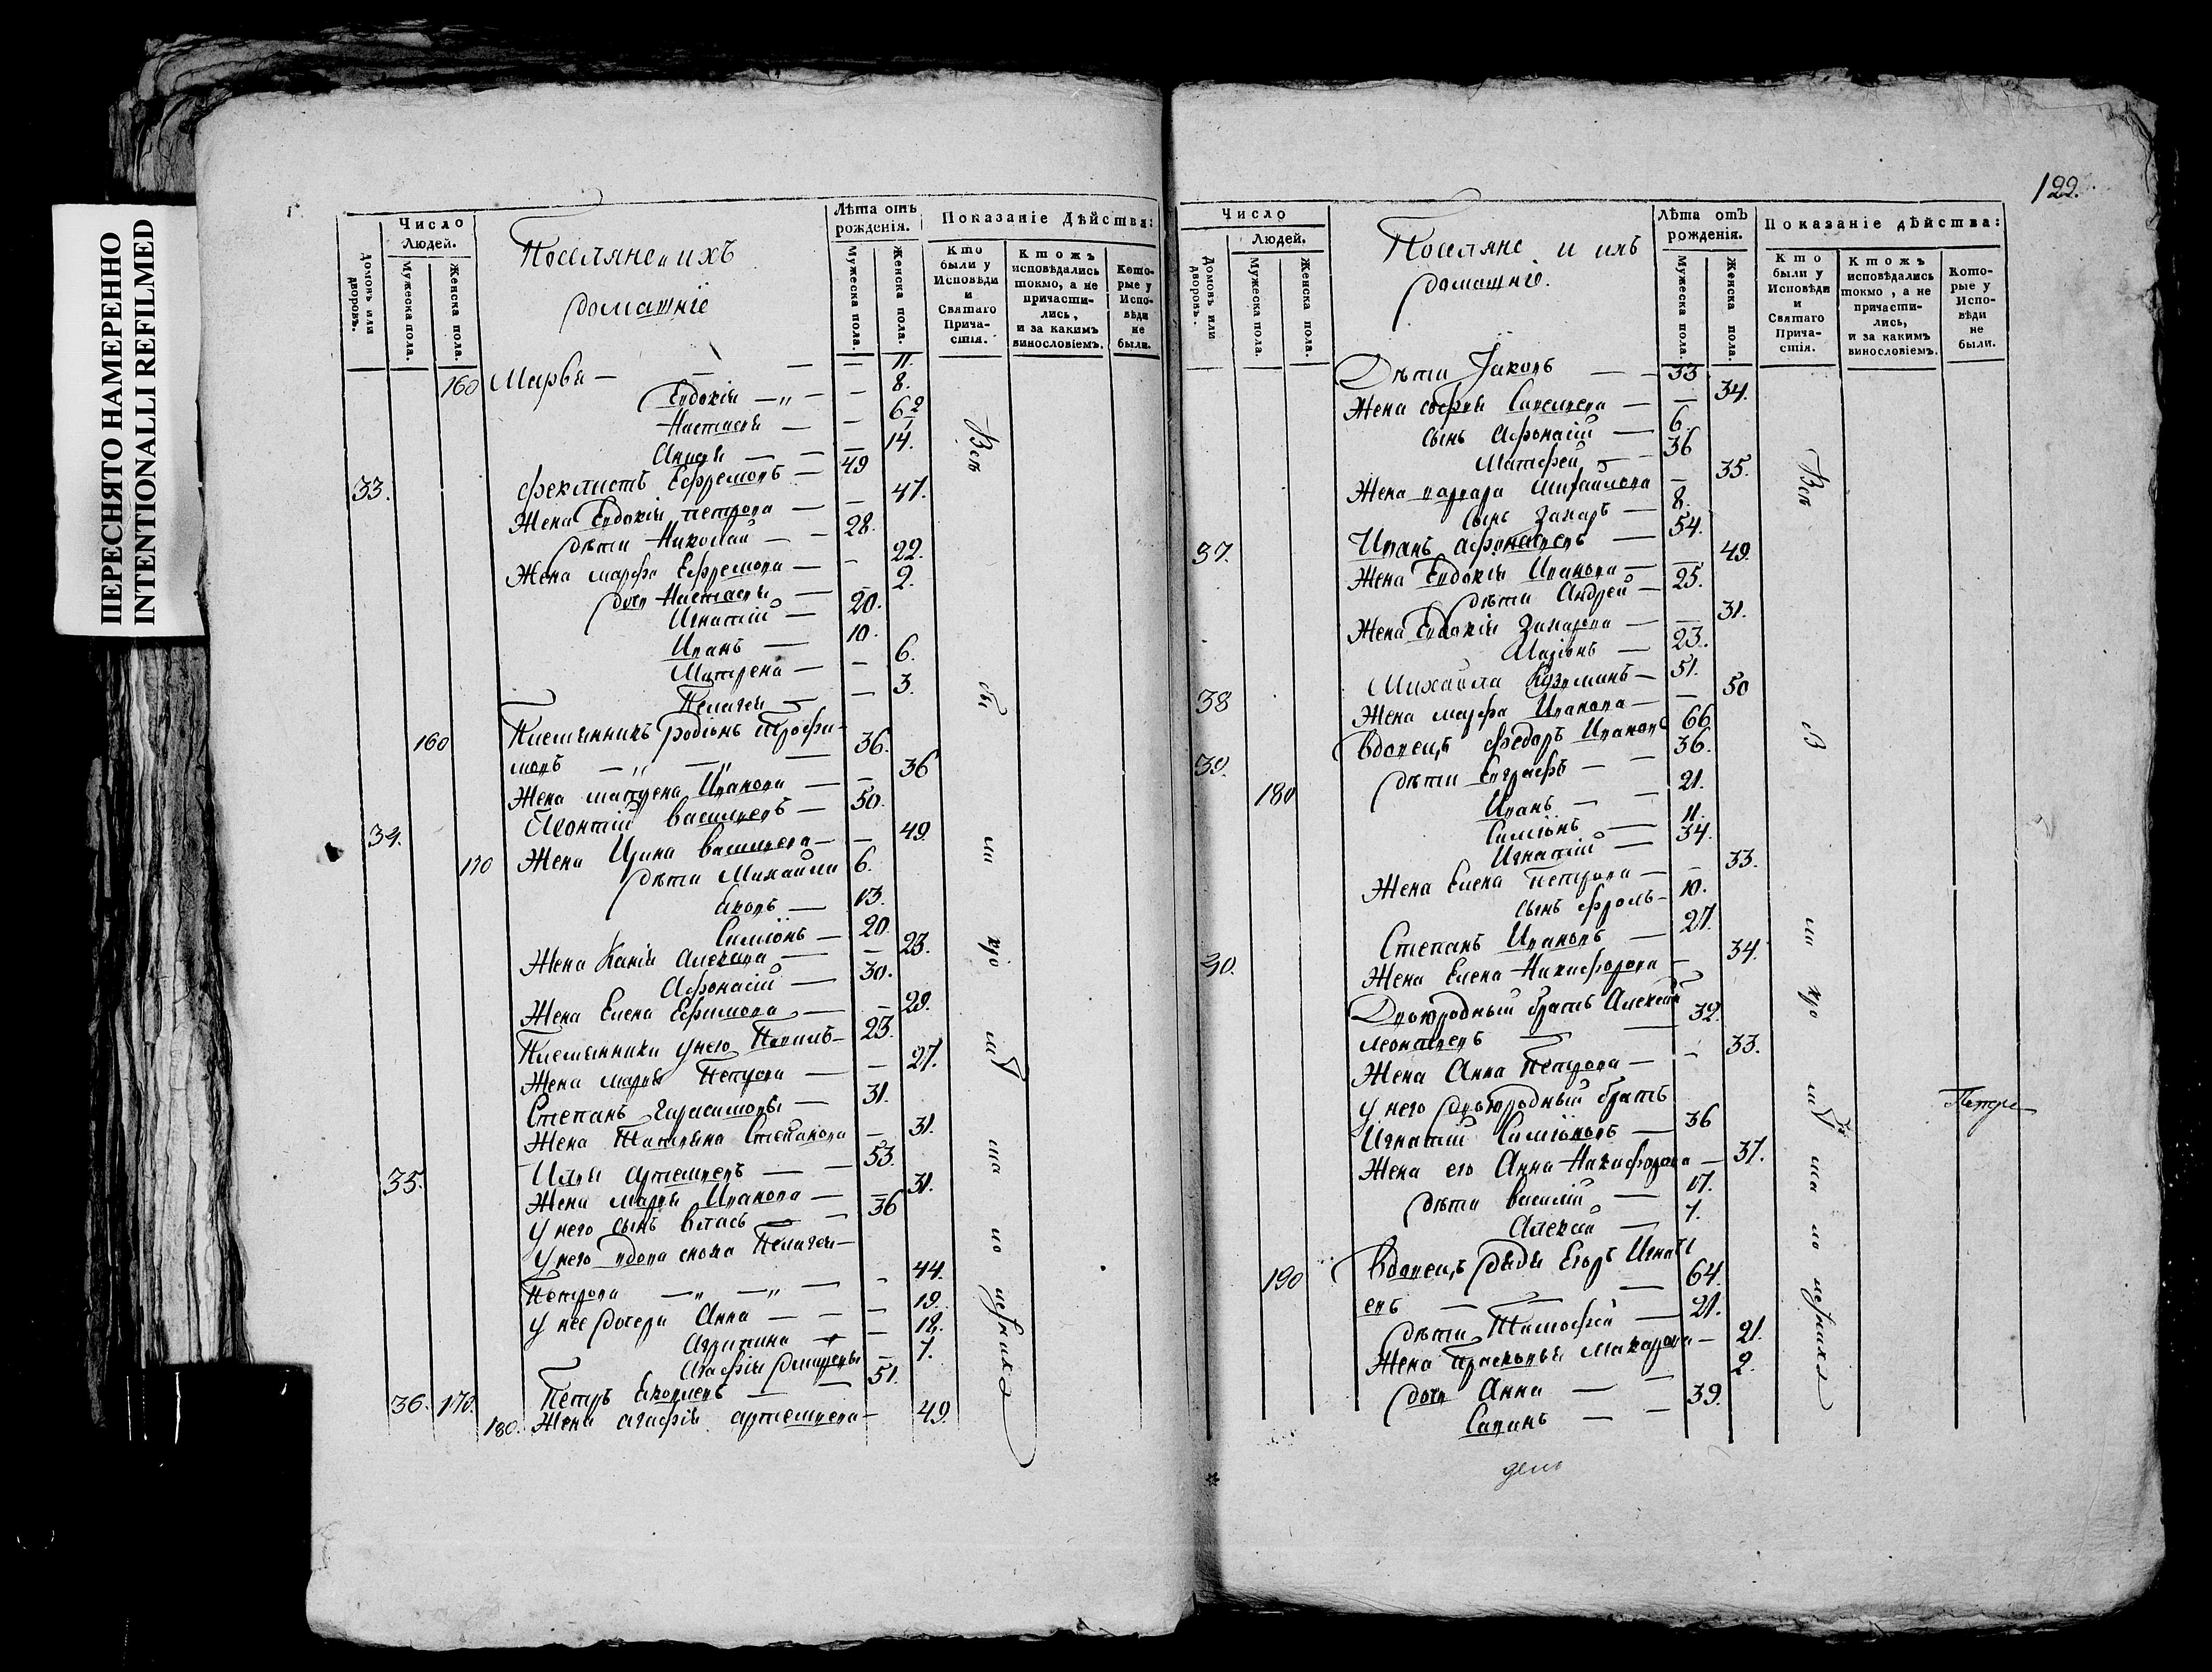 ПЕРЕСНЯТО НАМЕРЕННО
INTENTIONALLI REFILMED
Число
Людей.
Домовъ или дворовъ.
Мужеска пола.
Женска пола.
Поселяне и ихъ
домашніе
Лѣта отъ рожденія.
Мужеска пола.
Женска пола.
Показаніе Дѣйства:
Кто были у Исповѣди и Святаго Прича-стія.
Ктожъ исповѣдались токмо, а не причасти-лись, и за какимъ винословіемъ.
Кото-рые у Испо-вѣди не были.
160 Марья — — — 11.
Евдокія — „ — — 8.
Настасія — — 6
Анисія — — 14.
33. Феклистъ Ефремовъ — 49
Жена Евдокія Петрова — — 47.
дѣти Николай — — 28.
Жена Марфа Ефремова — — 22.
дочь Настасья — — 2.
Игнатій — 20.
Иванъ — 10.
Матрена — — 6.
Пелагея — — 3.
160 Племянникъ Родіонъ Трофи-
мовъ — „ — „ — 36.
Жена Матрена Иванова — — 36
34. Леонтій Васильевъ — 50.
170 Жена Ирина Васильева — — 49.
дѣти Михайла 6.
Яковъ — 13.
Симіонъ — 20.
Жена — — 23.
Афонасій — 30.
Жена Елена Ефимова — — 29.
Племянники у него — 23.
Жена Марья Петрова — — 27.
Степанъ Гарасимовъ — 31.
Жена Татьяна Степанова — 31.
35. Илья Артемьевъ — — 53.
Жена Марья Иванова — — 31.
У него сынъ Власъ — — 36
У него вдова сноха Пелагея —
Петрова — „ — „ — — 44.
у нее дочери Анна — — — 19.
Агрипина — — 12.
Агафія — 7.
36. 170. Петръ Яковлевъ — — 51.
180. Жена Агафія Артемьева — 49.
Всѣ
бы
ли
у
122.
Число
Людей.
Домовъ или дворовъ.
Мужеска пола.
Женска пола.
Поселяне и ихъ
домашніе.
Лѣта отъ рожденія.
Мужеска пола.
Женска пола.
Показаніе дѣйства:
Кто были у Исповѣди и Святаго Прича-стія.
Ктожъ исповѣдались токмо, а не причасти-лись, и за какимъ винословіемъ.
Кото-рые у Испо-вѣди не были.
Дѣти Іаковъ — — 33
Жена Софья Савельева — — 34.
сынъ Афонасій — 6.
Матфей — — 36
Жена Варвара Михайлова — 35.
сынъ Захаръ — 8.
37. Иванъ Афонасьевъ — 54.
Жена Евдокія Иванова — — 49.
дѣти Андрей — 25.
Жена Евдокія Захарова — — 31.
Ларіонъ — 23.
38 Михайла Кузминъ — 51.
Жена Марфа Иванова — — 50
39. Вдовецъ Федоръ Ивановъ 66
дѣти Евграфъ — — 36.
180 Иванъ — — 21.
Симіонъ — 11.
Игнатій — 34.
Жена Елена Петрова — — 33.
сынъ Фролъ — 10.
Степанъ Ивановъ — 27.
Жена Елена Никифорова — 34.
Двоюродный братъ Алексѣй
Леонтьевъ — — 32.
Жена Анна Петрова — — 33.
У него двоюродный братъ
Игнатій Симіоновъ — 36
Жена его Анна Никифорова — 37.
дѣти Василій — 17.
Алексѣй — 7.
190 Вдовецъ дядя Егоръ Игнать
евъ — — — 64.
дѣти Тимофей — 21.
Жена Прасковья Макарова — 21.
дочь Анна — — 2.
Савинъ — — 39.
Всѣ